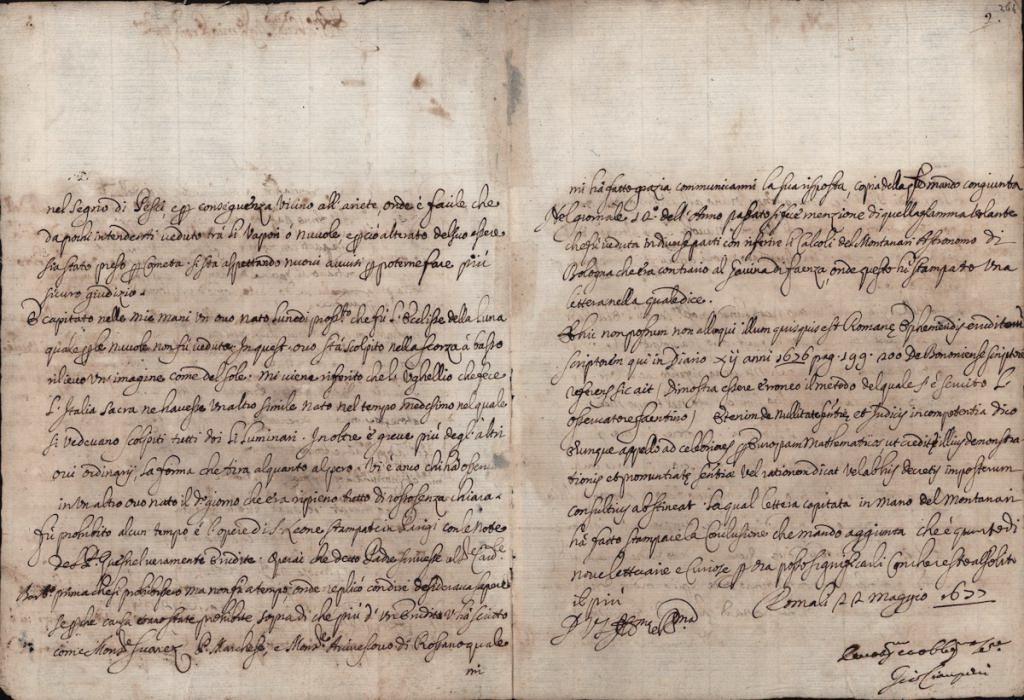 nel segno di Pesci e per conseguenza vicino all'ariete, onde è facile che
da poch' intendenti veduto trà li vapori ò nuvole e perciò alterato del suo essere
sia stato preso per Cometa. si stà aspettando nuovi avvisi per poterne fare più
sicuro giuditio.
È capitato nelle mie mani un ovo nato lunedì pross.to che fù l'Ecclisse della luna
quale per le nuvole non fù veduta. In quest'ovo stà scolpito nella scorza à basso
rilievo un'imagine come del sole. Mi viene riferito che l'Ughellio che fece
L'Italia Sacra ne havesse un altro simile nato nel tempo medesimo nel quale
si vedevano scolpiti tutti doi li luminari. Inoltre è greve più degl'altri
ovi ordinarij, la forma che tira alquanto aspero. Vi è anco chi hà osser.
in un altro ovo nato il d.o giorno che era ripieno tutto di rosto senza chiara.
Fù prohibito alcun tempo è l'opere di S. Leone stampate in Parigi con le Note
del P. Quesnel veramente erudite. Però che detto Padre scrivesse al Card.le
Barb.o prima che si prohibissero ma non fù a tempo onde replicò con dire desiderava sapere
se per che causa erano state prohibite sopra di che più d'un erudito v'hà scritto
come Mons.r de Suarez P. Marchese, e Mons.re Arcivescovo di Rossano quale
mi
2.
mi hà fatto grazia communicarmi la sua risposta, copia della quale mando congiunta
Nel giornale 12.o dell'Anno passato si fece menzione di quella fiamma volante
che fù veduta in diverse parti con riferire li Calcoli del Montanari Astronomo di
Bologna che era contrario al Cavina di faenza, onde questo hà stampato una
lettera nella quale dice.
Et hic non possum non alloqui illum quisquis est Romanę Ephemeridis eruditum
scriptorem qui in Diario XII anni 1676 pag. 199. 200 de Bononiensi scriptore
referens sic ait, Dimostra essere erroneo il metodo del quale s'è servito l'
osservatore faentino) Etenim de nullitate sentię, et Iudicis incompetentia dico
Eumque appello ad celebriores per Europam Mathematicos ut redditę illius demonstra
tionis et pronuntiatę sentię vel rationem dicat vel ab his decretis imposterum
consultius abstineat. la qual lettera capitata in mano del Montanari
hà fatto stampare la Conclusione che mando aggiunta che è quanto di
nove letterarie e curiose per hora posso significarli con che resto al solito
il più
Roma li 22 Maggio 1677
Di V.S. Ill.ma e R.ma
Devotis.mo et obblig.mo Ser.re
Gio: Ciampini